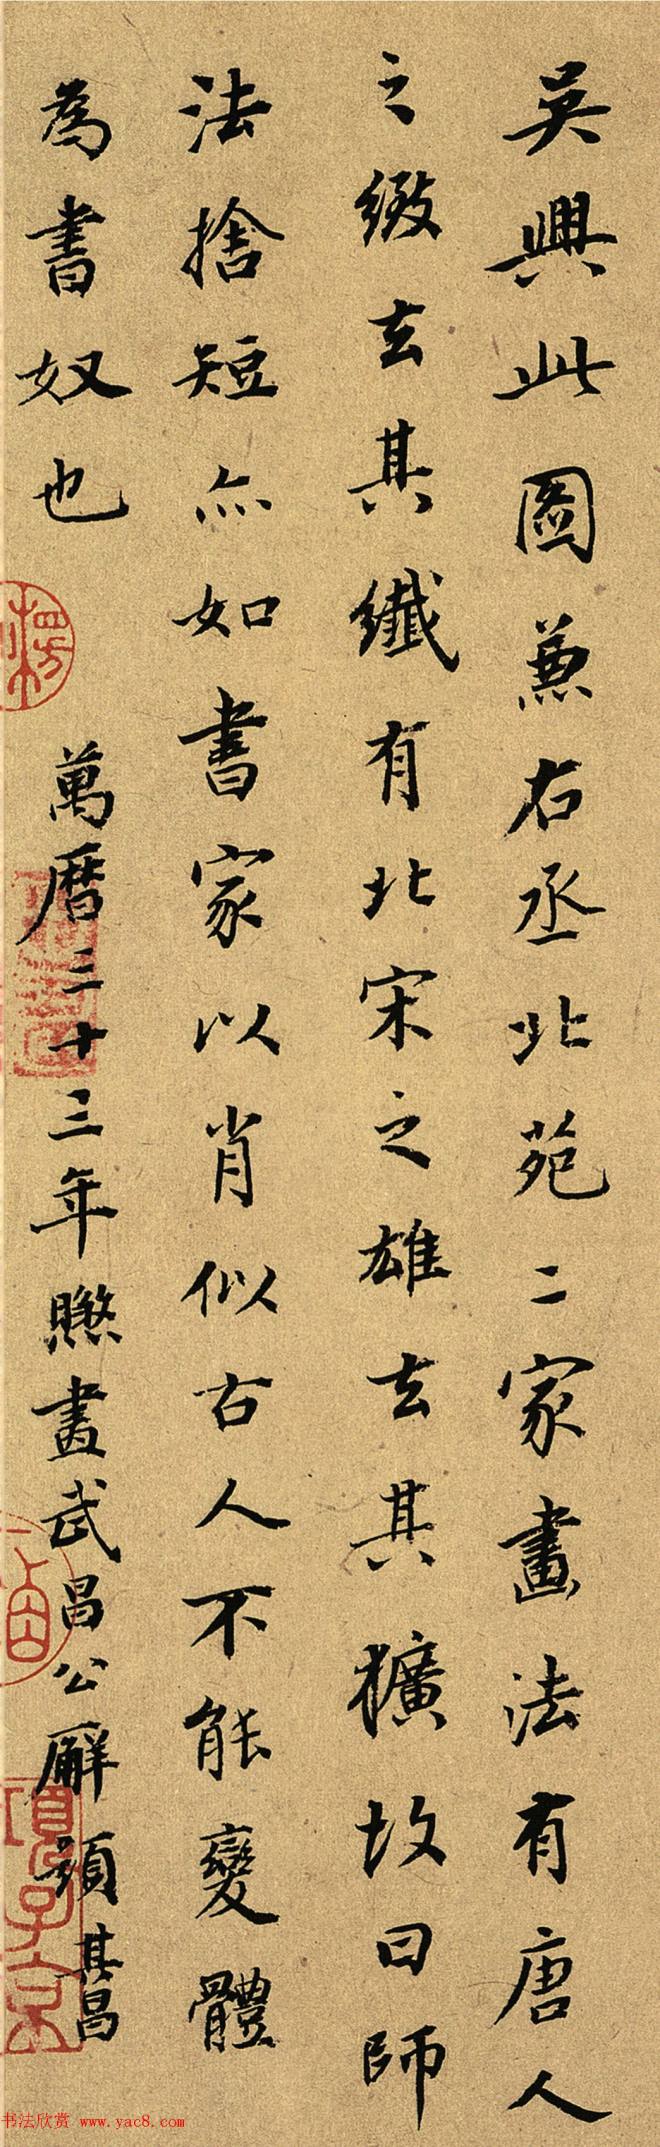 吳興此圖兼右丞北苑二家畫法有唐人
之緻去其纖有北宋之雄去其獷故曰師
法捨短亦如書家以肖似古人不能變體
為書奴也
萬曆三十三年晦畫武昌公廨題其昌
項子京
书法欣赏 www.yac8.com